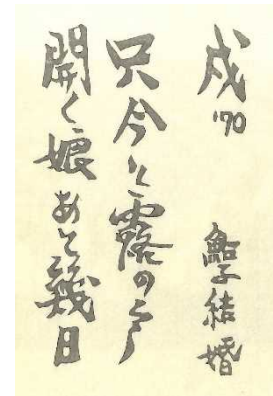 戌 '70
鮎子結婚
只今と露の戸
開く娘あと幾日